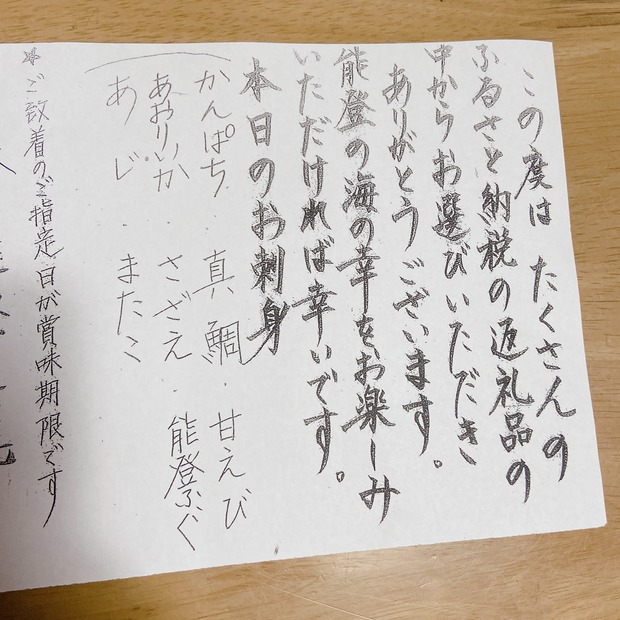 この度は たくさんの
ふるさと納税の返礼品の
中からお選びいただき
ありがとうございます。
能登の海の幸をお楽しみ
いただければ幸いです。
本日のお刺身
かんぱち・真鯛・甘えび
あおりいか・さざえ・能登ふぐ
あじ・またこ
*ご到着のご指定日が賞味期限です